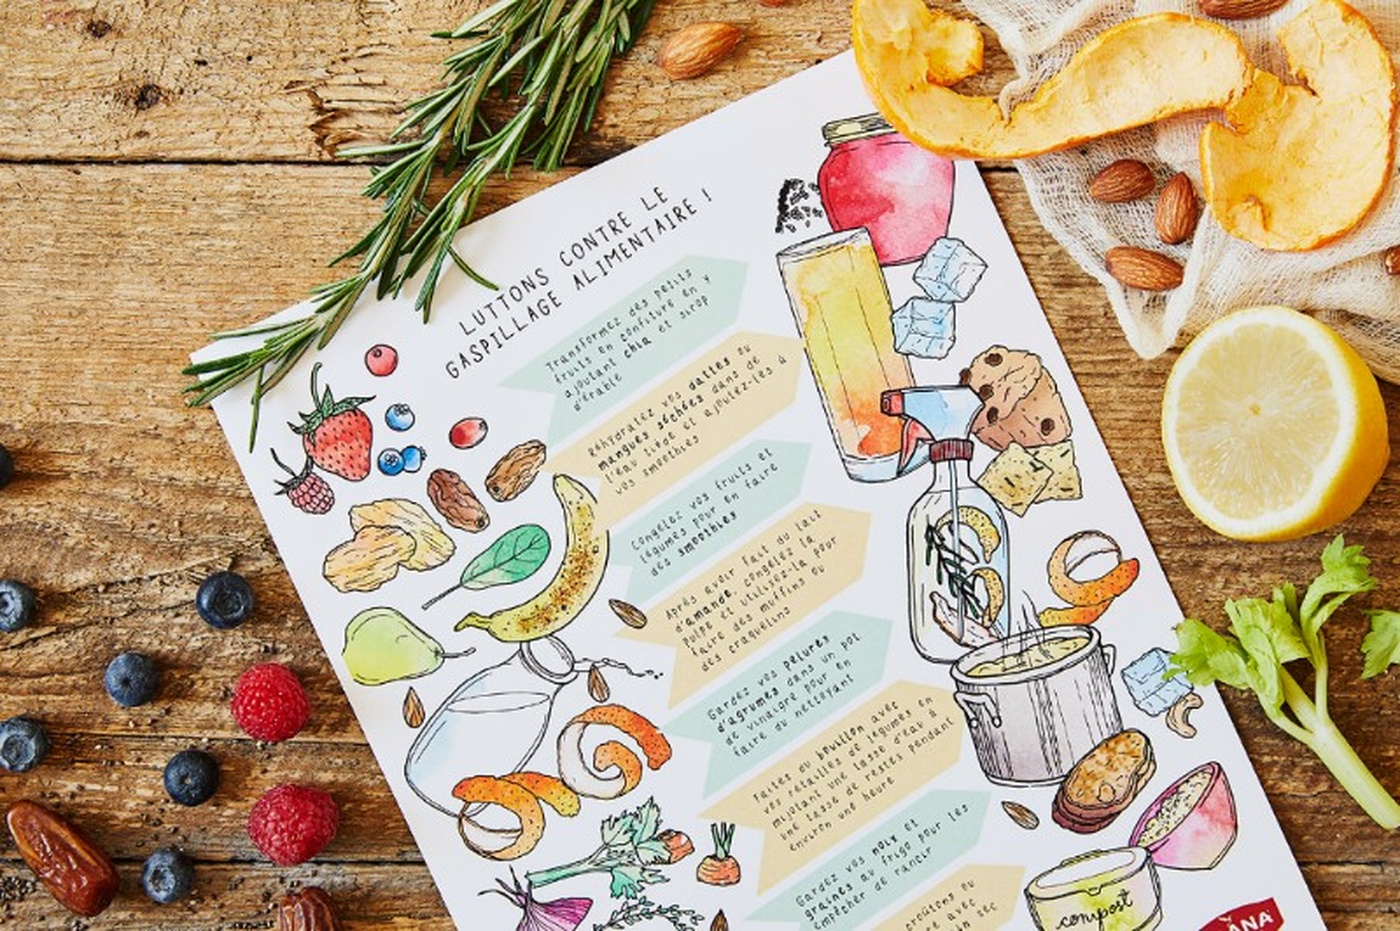 LUTTONS CONTRE LE
GASPILLAGE ALIMENTAIRE !
Transformez des petits
fruits en confiture en y
ajoutant chia et sirop
d'érable
Réhydratez vos dattes ou
mangues séchées dans de
l'eau tiède et ajoutez-les à
vos smoothies
Congelez vos fruits et
légumes pour en faire
des smoothies
Après avoir fait du lait
d'amande, congelez la
pulpe et utilisez-la pour
faire des muffins ou
des craquelins
Gardez vos pelures
d'agrumes dans un pot
de vinaigre pour en
faire du nettoyant
Faites du bouillon avec
vos retailles de légumes en
mijotant une tasse d'eau à
une tasse de restes pendant
environ une heure
Gardez vos noix et
graines au frigo pour les
empêcher de rancir
croûtons ou
avec
sec
compost
ANA